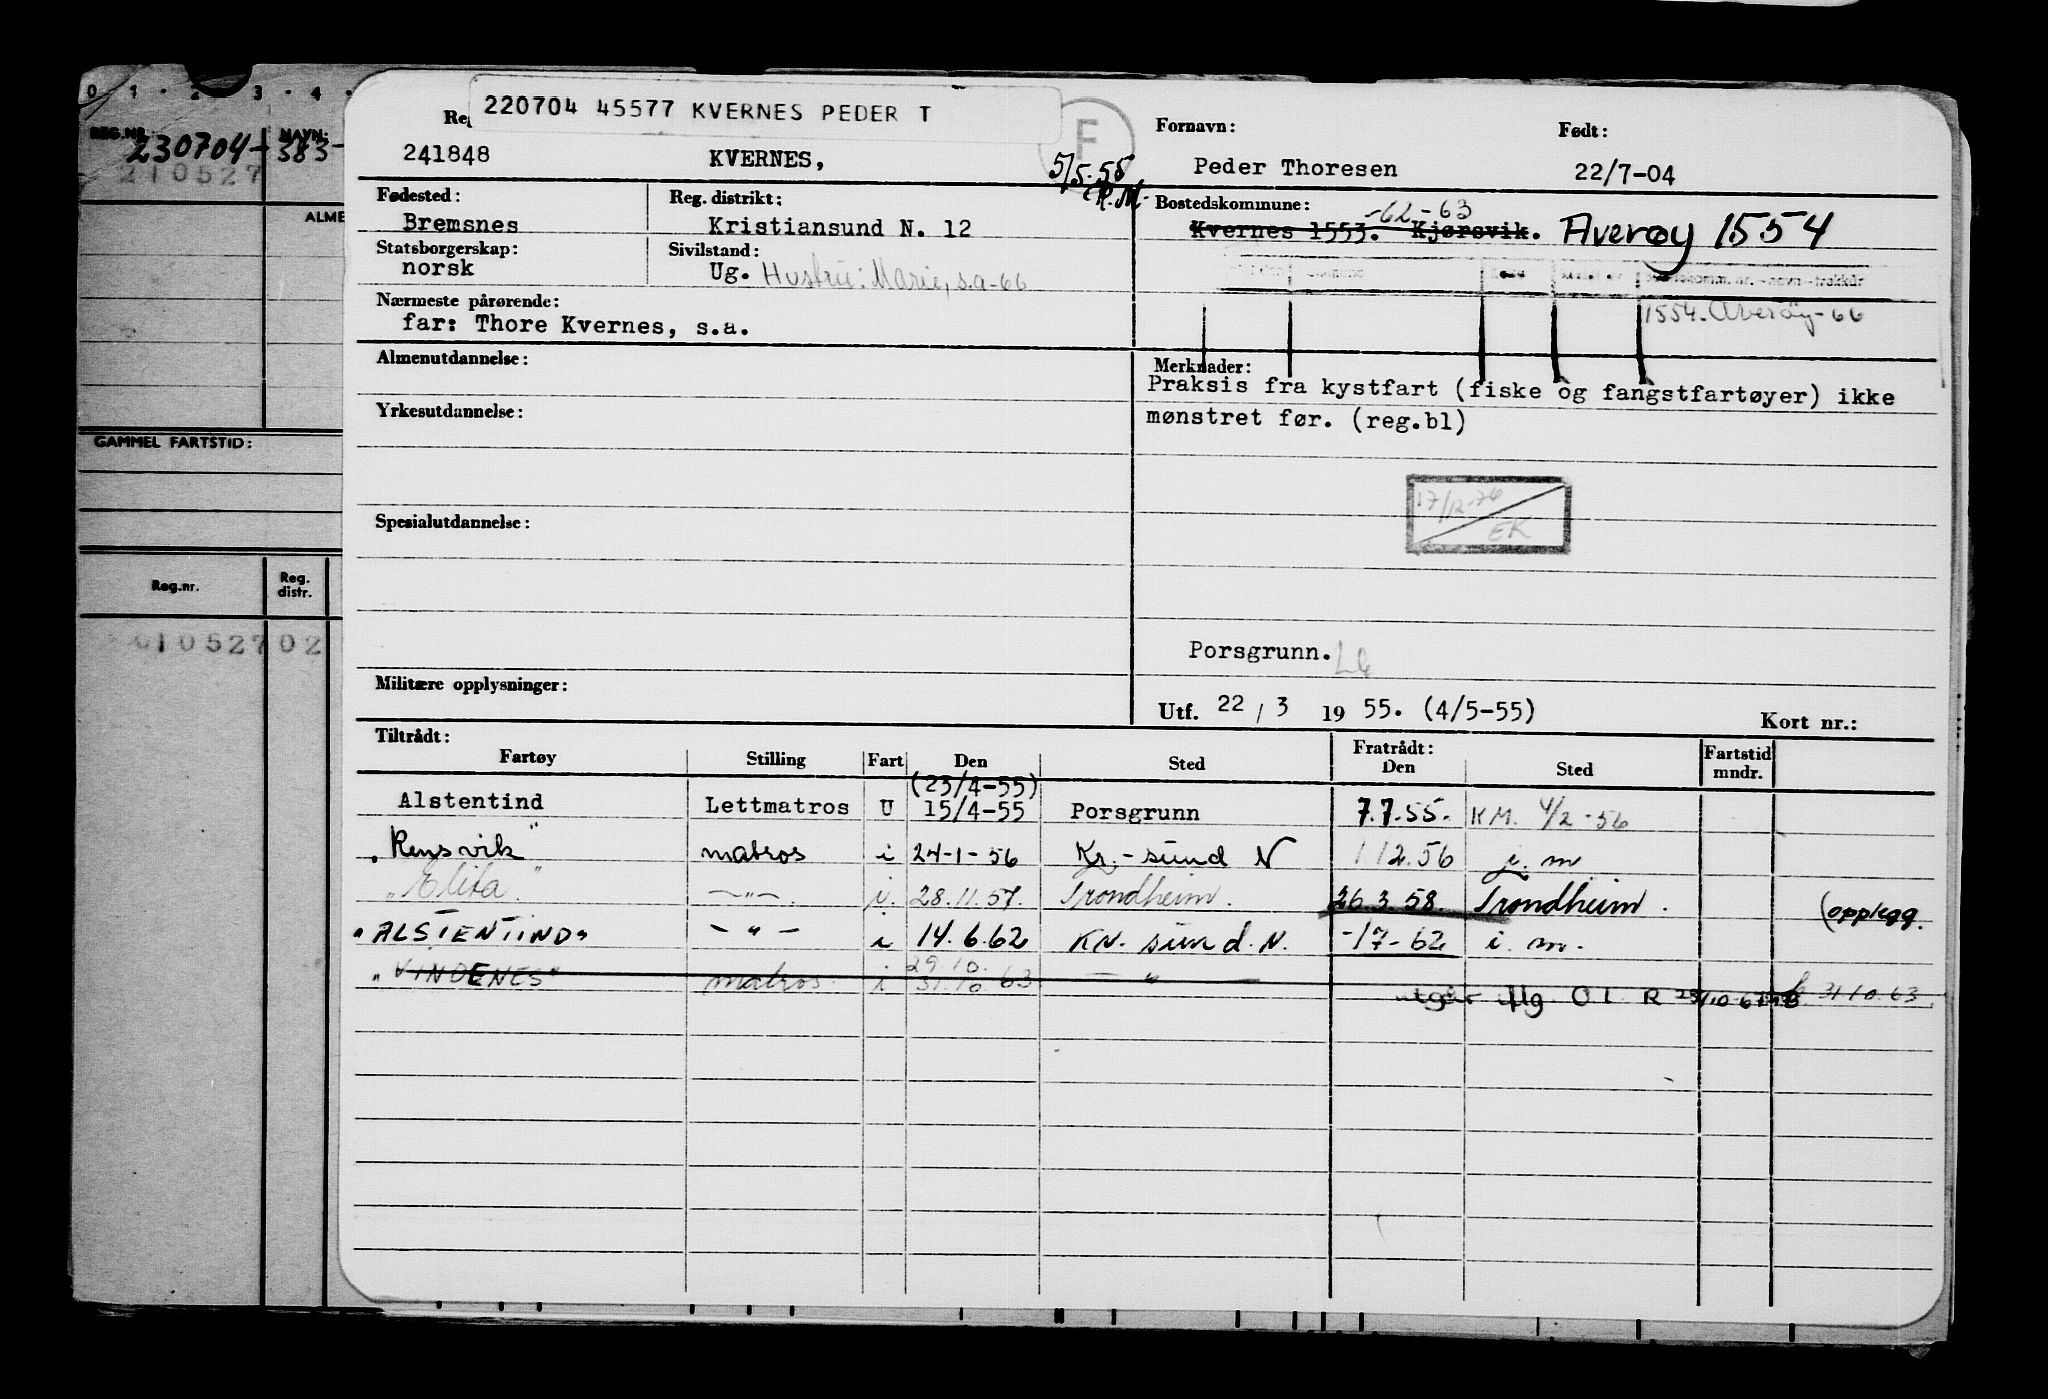 0 1 · 2 · 3 · 4 ·
REG.NR. NAVN:
230704-383-
210527
ALME
GAMMEL FARTSTID:
Reg.nr. Reg. distr.
0105270 2
220704 45577 KVERNES PEDER T
F
241848 KVERNES, 5/5-55 R.M.
Fornavn: Født:
Peder Thoresen 22/7-04
Fødested: Reg. distrikt:
Bremsnes Kristiansund N. 12
Bostedskommune: -62-63
Kvernes 1553. Kjørsvik. Averøy 1554
Statsborgerskap: Sivilstand:
norsk Ug. Hustru: Marie, s.a-66
1554. Averøy-66
Nærmeste pårørende:
far: Thore Kvernes, s.a.
Almenutdannelse:
Merknader:
Praksis fra kystfart (fiske og fangstfartøyer) ikke
mønstret før. (reg.bl)
Yrkesutdannelse:
17/12-76
EK
Spesialutdannelse:
Porsgrunn.
Militære opplysninger:
Utf. 22 / 3 19 55. (4/5-55) Kort nr.:
Tiltrådt: Fratrådt:
Fartøy Stilling Fart Den Sted Den Sted Fartstid mndr.
(23/4-55)
Alstentind Lettmatros U 15/4-55 Porsgrunn 7.7.55. KM. 4/2-56
"Rensvik" matros i 24-1-56 Kr.-sund N 1 12.56 i. m
"Elita" -"- i. 28.11.57. Trondheim. 26.3.58. Trondheim. (opplegg.
"ALSTENTIND" -"- i 14.6.62 KR. sund. N. -17-62 i. m.
29.10.
"VINDENES" matros i 31.10.63 -"-
flg. O.L. R 31.10.63